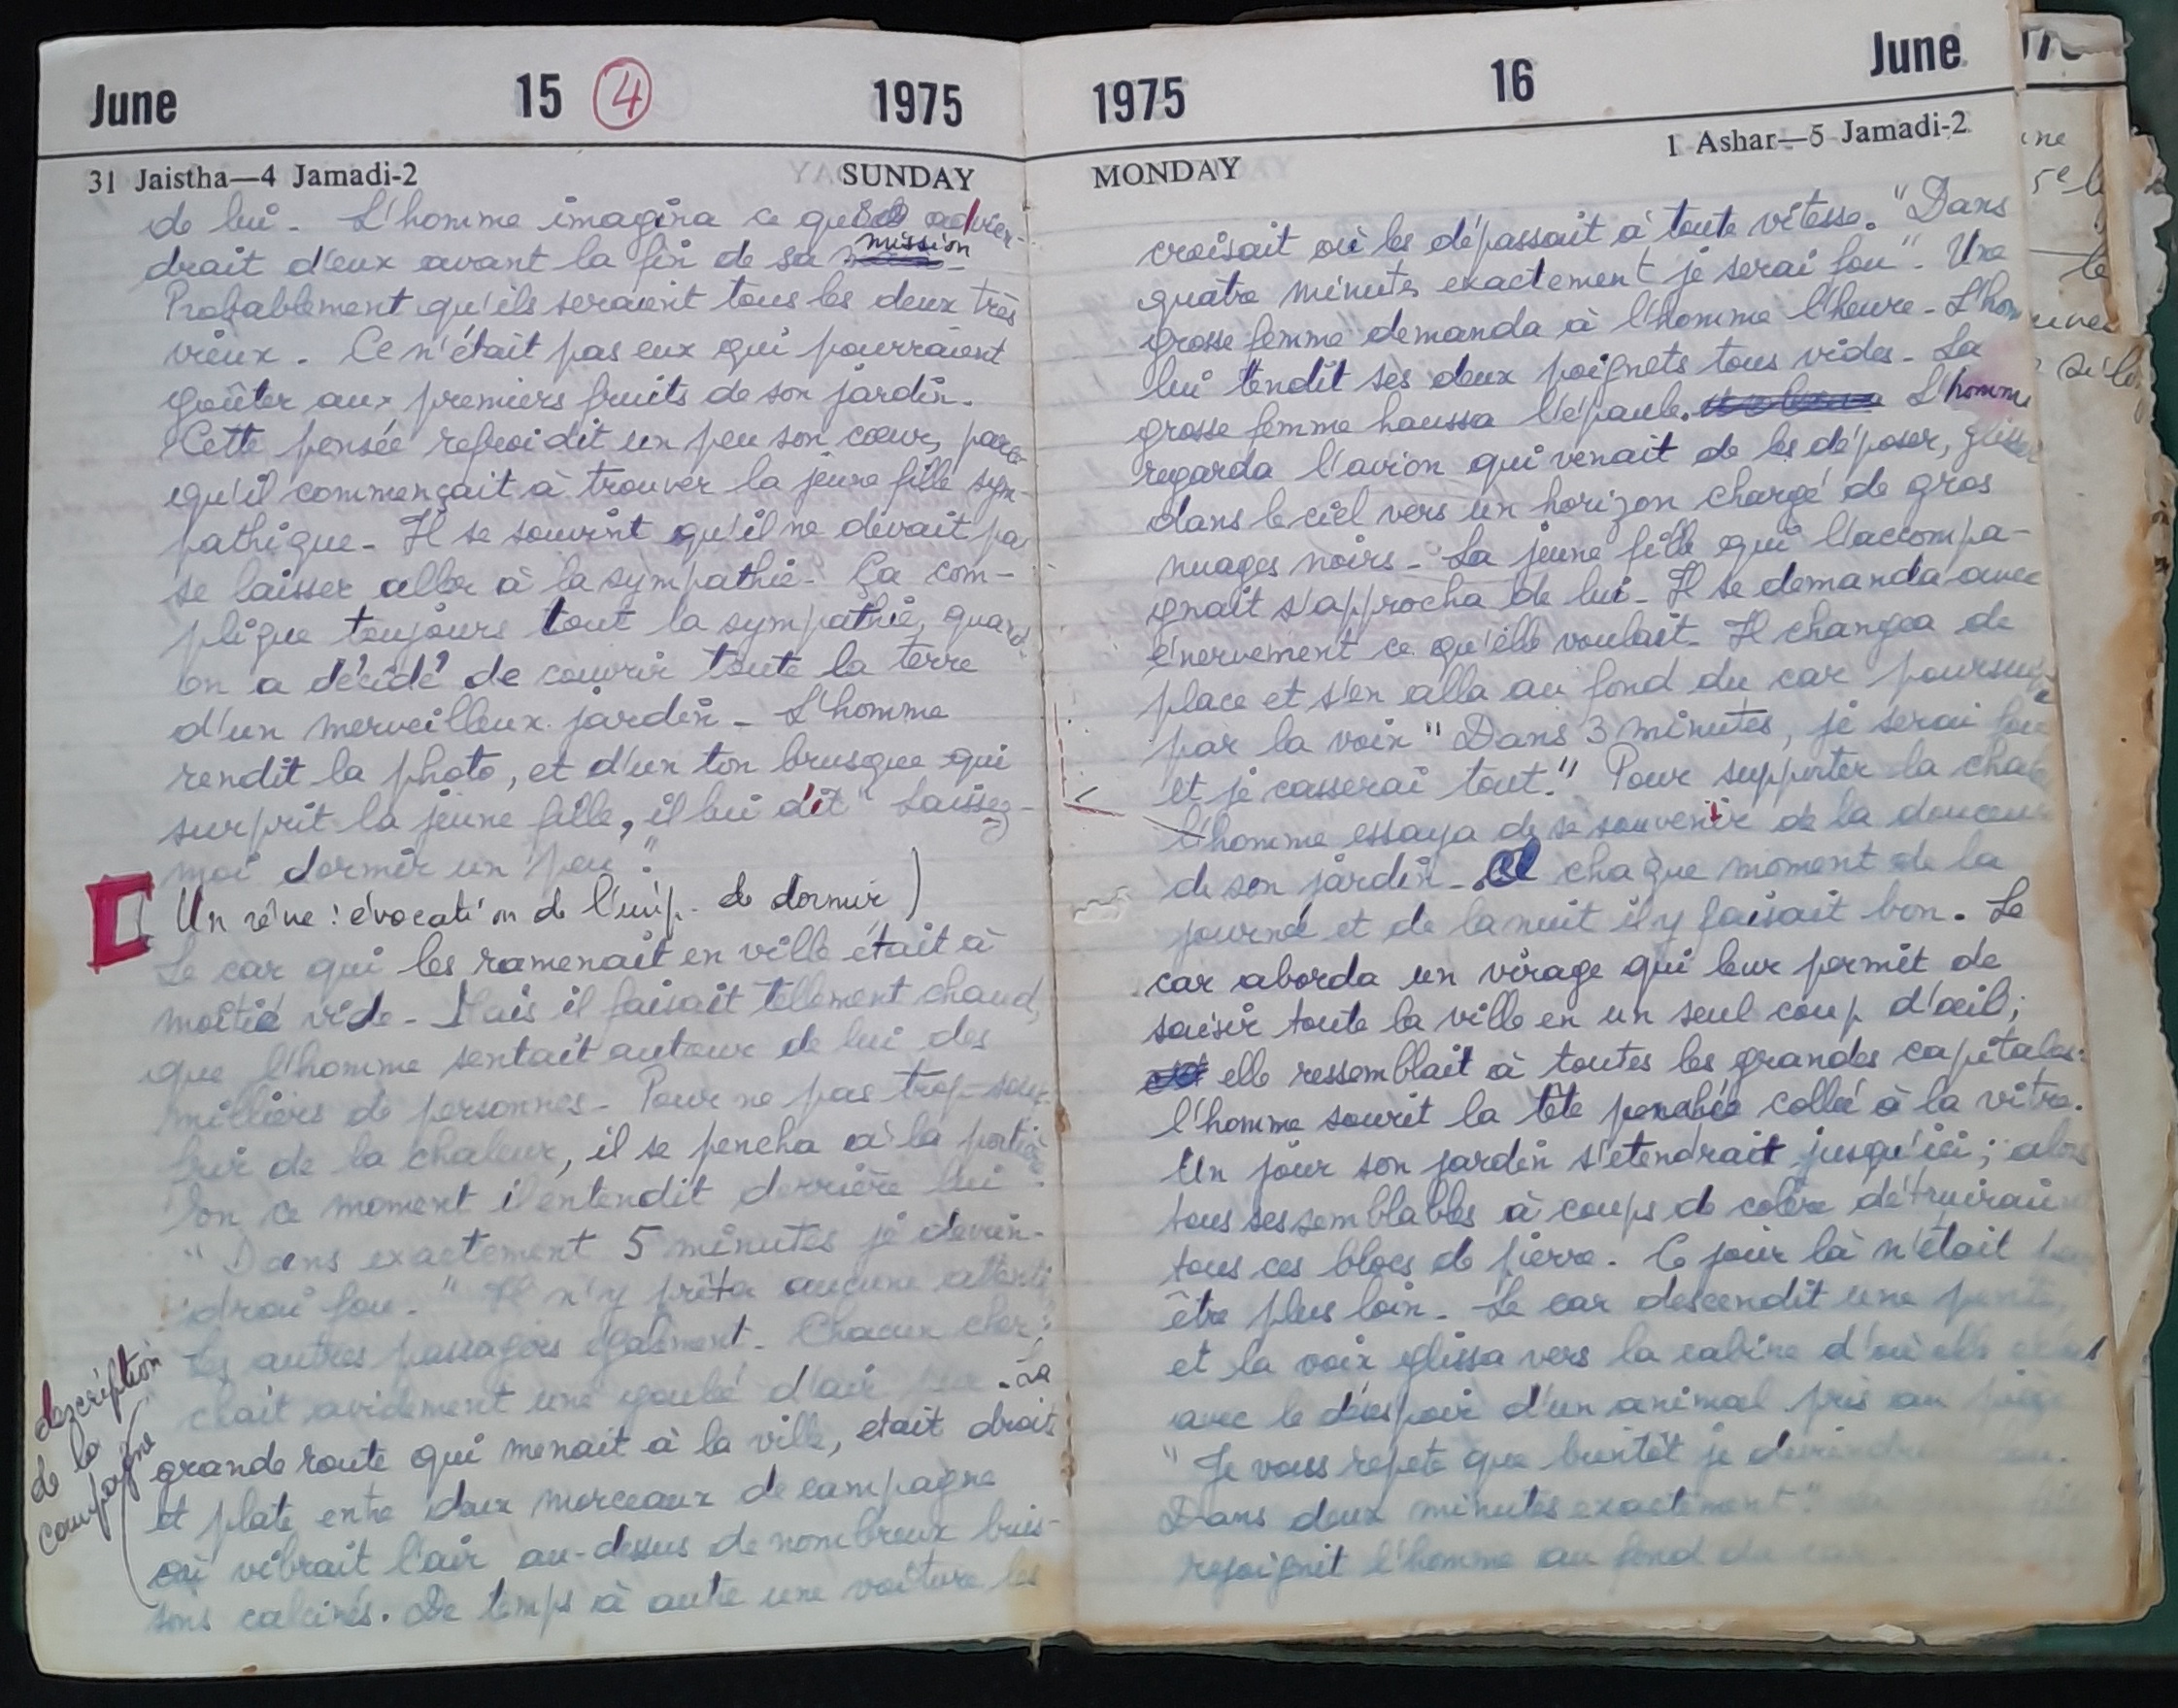 June 15 4 1975
31 Jaistha—4 Jamadi-2 SUNDAY
de lui - L'homme imagina ce qu'il advien-
mission
drait d'eux avant la fin de sa
Probablement qu'ils seraient tous les deux très
vieux. Ce n'était pas eux qui pourraient
goûter aux premiers fruits de son jardin.
Cette pensée refroidit un peu son cœur, parce
qu'il commençait à trouver la jeune fille sym-
pathique - Il se souvint qu'il ne devait pas
se laisser aller à la sympathie - Ça com-
plique toujours tout la sympathie, quand
on a décidé de couvrir toute la terre
d'un merveilleux jardin - L'homme
rendit la photo, et d'un ton brusque qui
surprit la jeune fille, il lui dit "Laissez-
moi dormir un peu".
Un rêve : évocation de l'imp. de dormir)
Le car qui les ramenait en ville était à
moitié vide - Mais il faisait tellement chaud,
que l'homme sentait autour de lui des
milliers de personnes - Pour ne pas trop souf-
frir de la chaleur, il se pencha à la portière
En ce moment il entendit derrière lui :
"Dans exactement 5 minutes je devien-
drai fou." Il n'y prêta aucune attenti
Les autres passagers également - Chacun cher-
chait avidement une goulée d'air pur. La
grande route qui menait à la ville, etait droite
et plate entre deux morceaux de campagne
où vibrait l'air au-dessus de nombreux buis-
sons calcinés. De temps à autre une voiture les
description
de la
campagne
1975 16 June
MONDAY 1 Ashar—5 Jamadi-2
croisait où les dépassait à toute vitesse. "Dans
quatre minutes exactement je serai fou". Une
grosse femme demanda à l'homme l'heure - L'hom
lui tendit ses deux poignets tous vides - La
grosse femme haussa l'épaule. L'homme
regarda l'avion qui venait de les déposer, glisser
dans le ciel vers un horizon chargé de gros
nuages noirs - La jeune fille qui l'accompa-
gnait s'approcha de lui - Il se demanda avec
énervement ce qu'elle voulait - Il changea de
place et s'en alla au fond du car poursuivi
par la voix "Dans 3 minutes, je serai fou
et je casserai tout." Pour supporter la chale
l'homme essaya de se souvenir de la douceur
de son jardin - chaque moment de la
journé et de la nuit il y faisait bon. Le
car aborda un virage qui leur permit de
saisir toute la ville en un seul coup d'œil;
elle ressemblait à toutes les grandes capitales.
l'homme sourit la tête penchée collée à la vitre.
Un jour son jardin s'étendrait jusqu'ici; alors
tous ses semblables à coups de colère détruirai
tous ces blocs de pierre. Ce jour là n'était peu
être plus loin - Le car descendit une pente,
et la voix glissa vers la cabine d'où elle
avec le désespoir d'un animal pris au piège
"Je vous répète que bientôt je deviendrai fou.
Dans deux minutes exactement."
rejoignit l'homme au fond du car